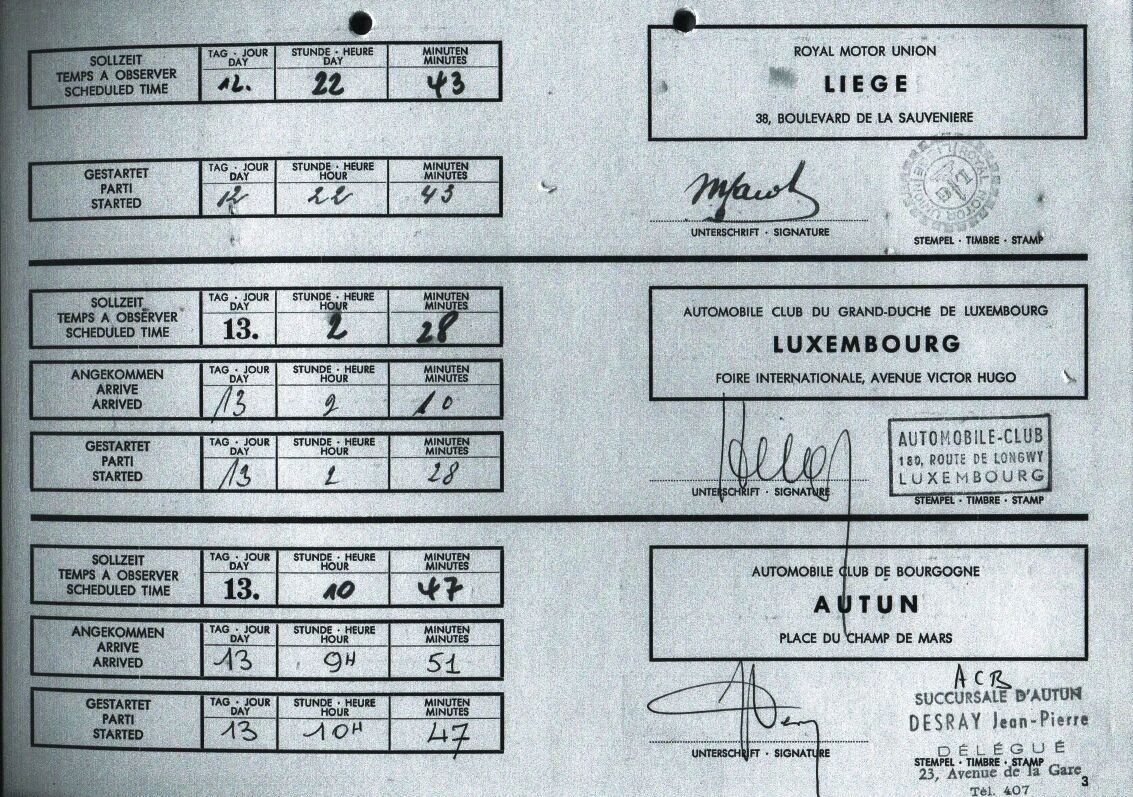 SOLLZEIT
TEMPS A OBSERVER
SCHEDULED TIME
TAG · JOUR
DAY
12.
STUNDE · HEURE
DAY
22
MINUTEN
MINUTES
43
ROYAL MOTOR UNION
LIEGE
38, BOULEVARD DE LA SAUVENIERE
GESTARTET
PARTI
STARTED
TAG · JOUR
DAY
12
STUNDE · HEURE
HOUR
22
MINUTEN
MINUTES
43
UNTERSCHRIFT · SIGNATURE
STEMPEL · TIMBRE · STAMP
SOLLZEIT
TEMPS A OBSERVER
SCHEDULED TIME
TAG · JOUR
DAY
13.
STUNDE · HEURE
HOUR
2
MINUTEN
MINUTES
28
AUTOMOBILE CLUB DU GRAND-DUCHÉ DE LUXEMBOURG
LUXEMBOURG
FOIRE INTERNATIONALE, AVENUE VICTOR HUGO
ANGEKOMMEN
ARRIVE
ARRIVED
TAG · JOUR
DAY
13
STUNDE · HEURE
HOUR
2
MINUTEN
MINUTES
10
GESTARTET
PARTI
STARTED
TAG · JOUR
DAY
13
STUNDE · HEURE
HOUR
2
MINUTEN
MINUTES
28
AUTOMOBILE-CLUB
180, ROUTE DE LONGWY
LUXEMBOURG
UNTERSCHRIFT · SIGNATURE
STEMPEL · TIMBRE · STAMP
SOLLZEIT
TEMPS A OBSERVER
SCHEDULED TIME
TAG · JOUR
DAY
13.
STUNDE · HEURE
HOUR
10
MINUTEN
MINUTES
47
AUTOMOBILE CLUB DE BOURGOGNE
AUTUN
PLACE DU CHAMP DE MARS
ANGEKOMMEN
ARRIVE
ARRIVED
TAG · JOUR
DAY
13
STUNDE · HEURE
HOUR
9H
MINUTEN
MINUTES
51
GESTARTET
PARTI
STARTED
TAG · JOUR
DAY
13
STUNDE · HEURE
HOUR
10H
MINUTEN
MINUTES
47
ACB
SUCCURSALE D'AUTUN
DESRAY Jean-Pierre
DÉLÉGUÉ
UNTERSCHRIFT · SIGNATURE
STEMPEL · TIMBRE · STAMP
23, Avenue de la Gare
Tél. 407
3